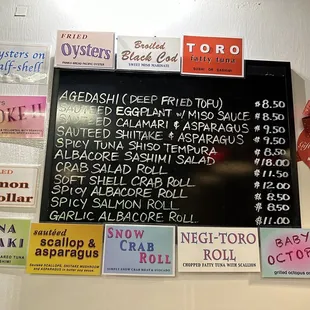 FRIED
Oysters
Broiled
Black Cod
SWEET MISO MARINATE
TORO
fatty tuna
oysters on
half-shell
AGEDASHI (DEEP FRIED TOFU) $8.50
SAUTEED EGGPLANT W/ MISO SAUCE $8.50
SAUTEED CALAMARI & ASPARAGUS $9.50
SAUTEED SHIITAKE & ASPARAGUS $9.50
SPICY TUNA SHISO TEMPURA $8.50
ALBACORE SASHIMI SALAD $18.00
CRAB SALAD ROLL $11.50
SOFT SHELL CRAB ROLL $12.00
SPICY ALBACORE ROLL $8.50
SPICY SALMON ROLL $8.50
GARLIC ALBACORE ROLL $11.50
sautéed
scallop &
asparagus
SNOW
CRAB
ROLL
NEGI-TORO
ROLL
CHOPPED FATTY TUNA WITH SCALLION
BABY
OCTO
grilled octopus